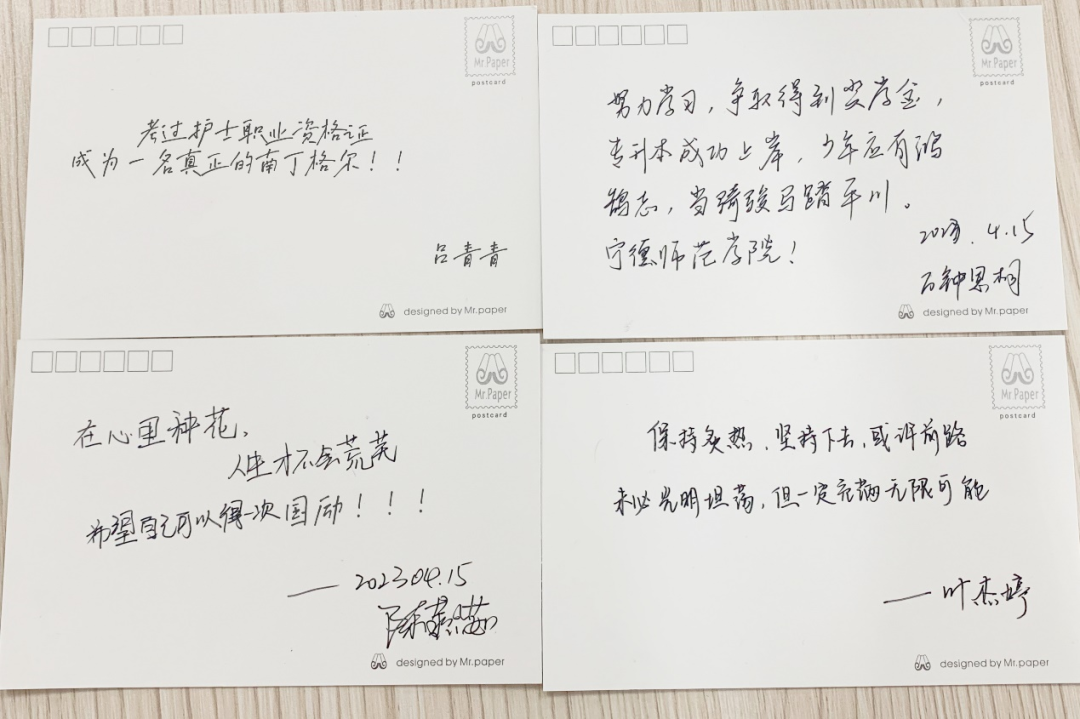 Mr.Paper
postcard
考过护士职业资格证
成为一名真正的南丁格尔！！
吕青青
designed by Mr.paper
Mr.Paper
postcard
努力学习，争取得到奖学金，
专升本成功上岸，少年应有鸿
鹄志，当骑骏马踏平川。
宁德师范学院！
2023.4.15
designed by Mr.paper
Mr.Paper
postcard
在心里种花，
人生才不会荒芜
希望自己可以得一次国励！！！
——2023.04.15
designed by Mr.paper
Mr.Paper
postcard
保持炙热，坚持下去，或许前路
未必光明坦荡，但一定充满无限可能
——叶杰婷
designed by Mr.paper